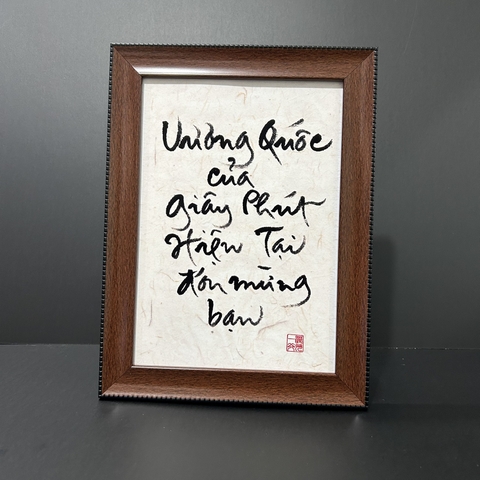 Vương Quốc
của
Giây Phút
Hiện Tại
đón mừng
bạn